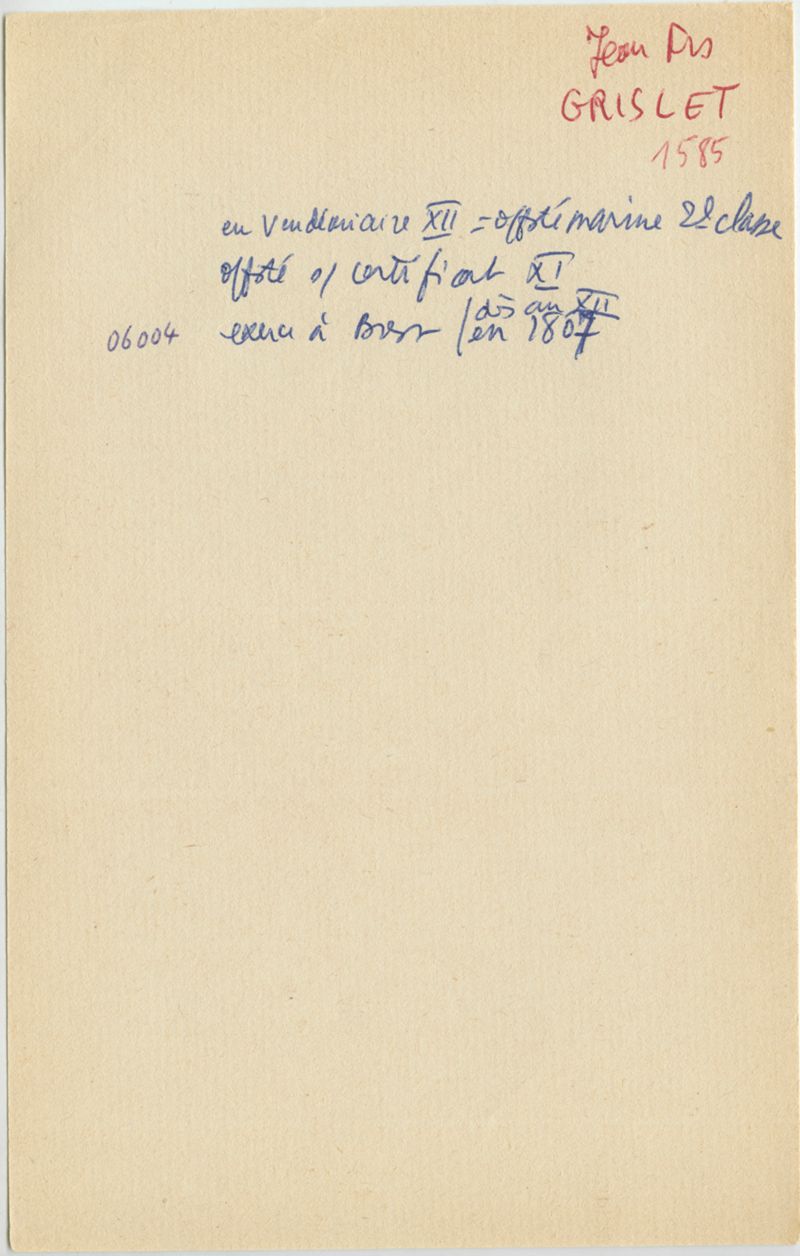 Jean Frs
GRISLET
1585
en Vendémiaire XII = offsté marine 2e classe
offsté s/ certificat XI
dès an XII
06004 exerce à Brest / en 1807